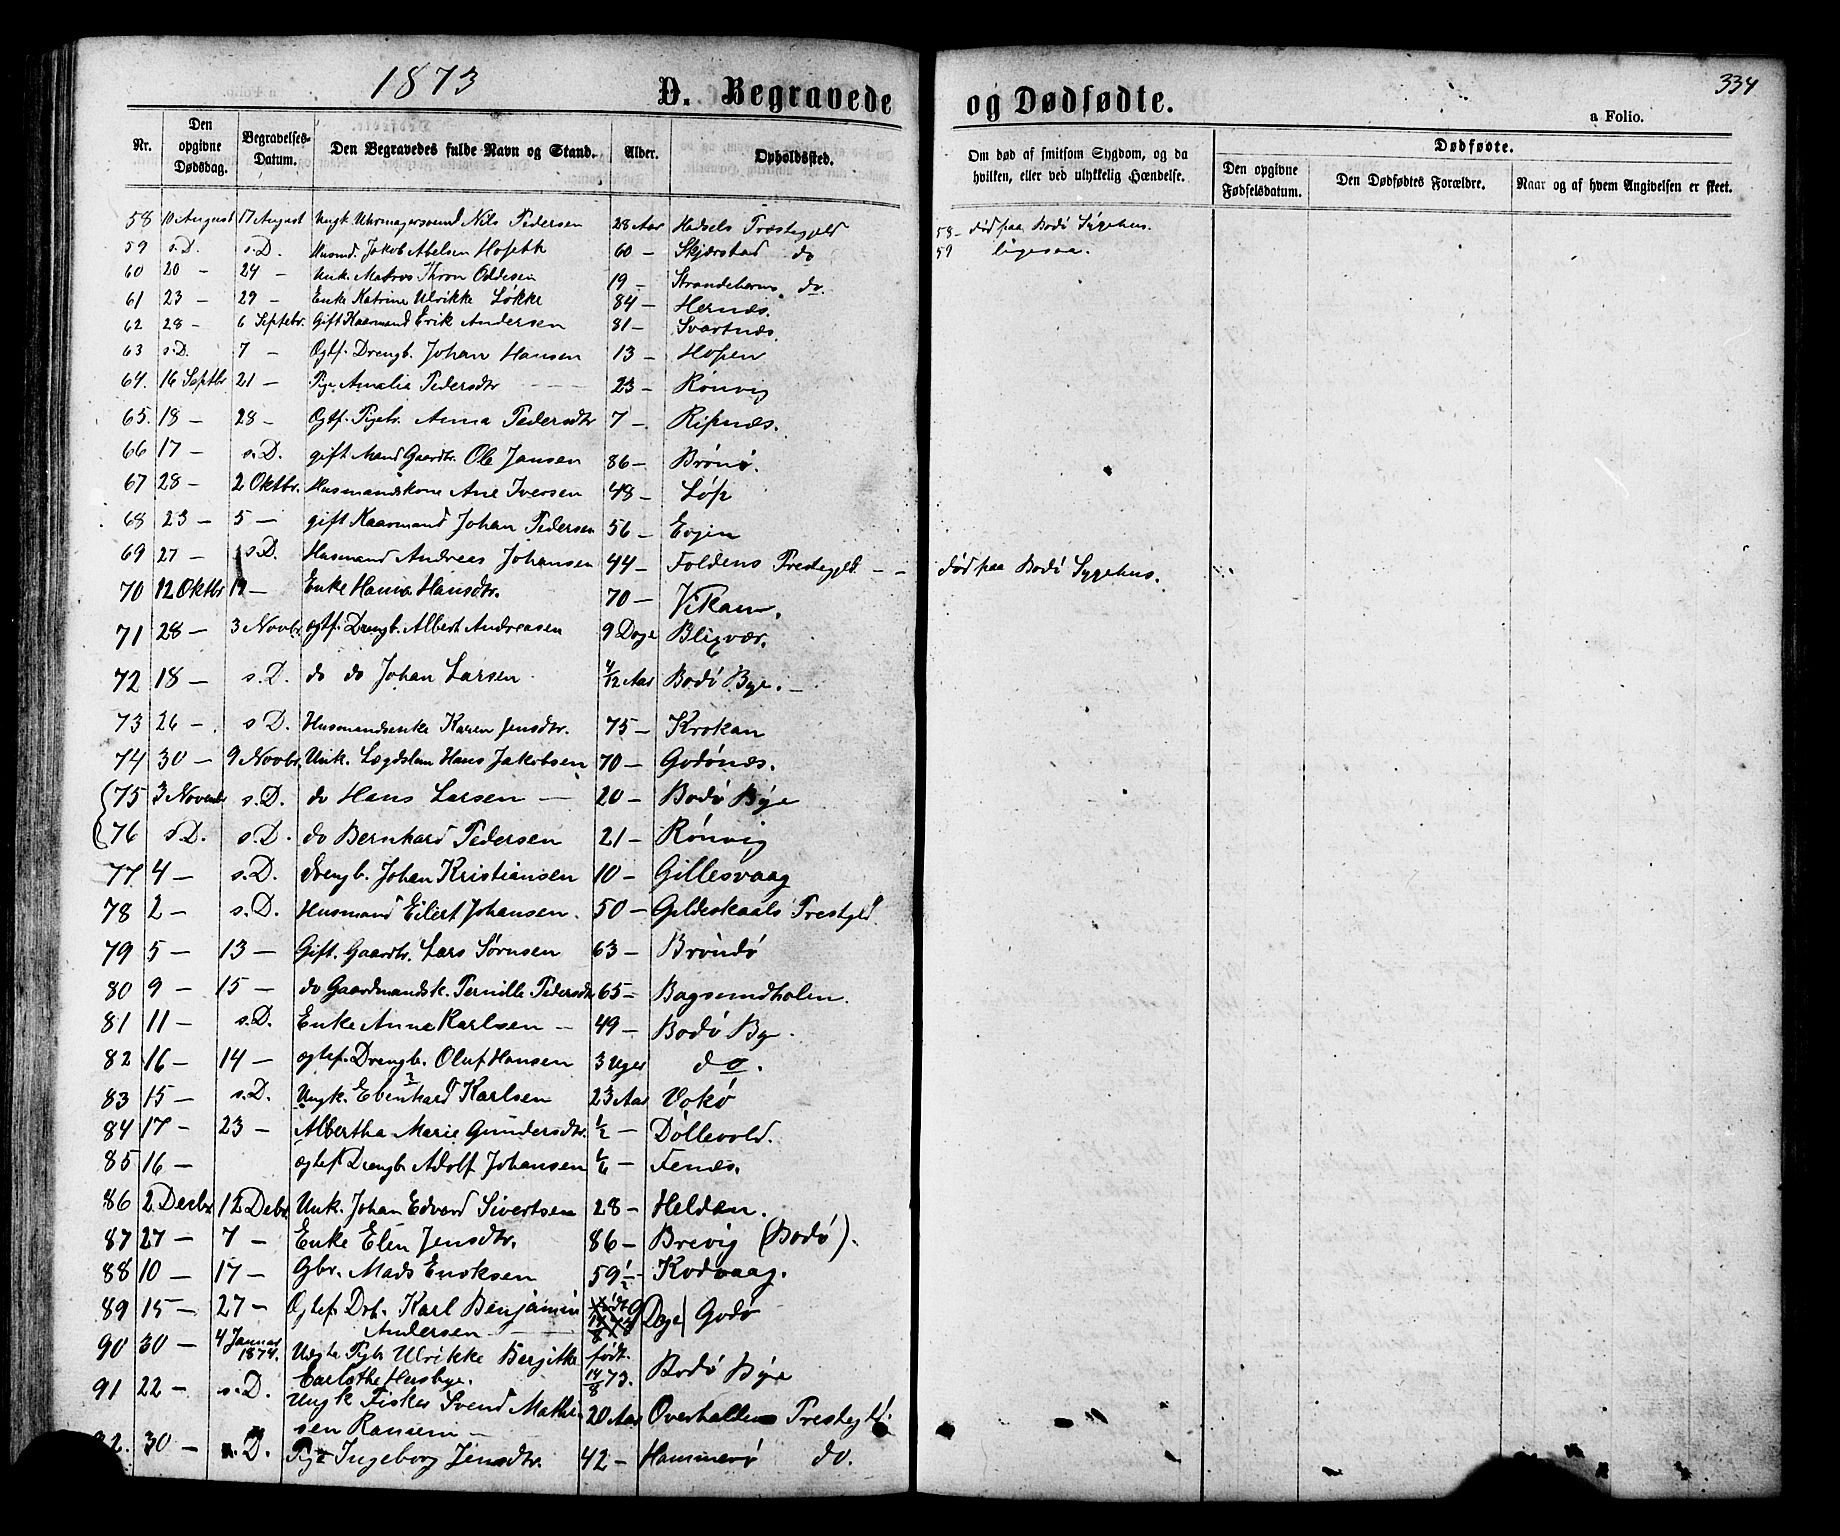 1873
D. Begravede og Dødfødte.
334
a Folio.
Nr. Den opgivne Dødsdag. Begravelses-Datum. Den Begravedes fulde Navn og Stand. Alder. Opholdssted. Om død af smitsom Sygdom, og da hvilken, eller ved ulykkelig Hændelse. Dødfødte. Den opgivne Fødselsdatum. Den Dødfødtes Forældre. Naar og af hvem Angivelsen er skeet.
58 10 August 17 August Ungk. Uhrmagersvend Nils Pedersen 28 Aar Hadsels Præstegjeld 58- død paa Bodø Sygehus.
59 s.D. s.D. Husmd. Jakob Abelsen Hoseth 60 - Skjerstad do 59 ligesaa.
60 20 - 24 - Unk. Matros Thron Oddesen 19 - Strandeberms do.
61 23 - 29 - Enke Katrine Ulrikke Løkke 84 - Hernæs.
62 28 - 6 Septebr. Gift Kaarmand Erik Andersen 81 - Svartnæs.
63 s.D. 7 - Ogtf. Drengb. Johan Hansen 13 - Hopen
64. 16 Septbr 21 - Pige Amalia Pedersdtr 23 - Rønvig
65. 18 - 28 - Ogtf. Pigebr. Anna Pedersdtr 7 - Ripnæs.
66 17 - s.D. gift Mand Gaardbr. Ole Jansen 86 - Brønø.
67 28 - 2 Oktbr. Husmandskone Ane Iversen 48 - Løp
68 23 - 5 - gift Kaarmand Johan Pedersen 56 - Evjen
69 27 - s.D. Husmand Andreas Johansen 44 - Foldens Prestegjeld - - død paa Bodø Sygehus.
70 12 Oktbr 12 - Enke Hanna Hansdtr. 70 - Vikan.
71 28 - 3 Novbr ogtf. Drengb. Albert Andreasen 9 Dage Bligvær.
72 18 - s.D. do do Johan Larsen 4/12 Aar Bodø Bye. -
73 26 - s D. Husmandsenke Karen Jensdtr. 75 - Krokan
74 30 - 9 Novbr. Unk. Lægdslem Hans Jakobsen 70 - Godønæs.
75 3 Novenbr s.D. do Hans Larsen - 20 - Bodø Bye
76 s D. s.D. do Bernhard Pedersen 21 - Rønvig
77 4 - s.D. drengb. Johan Kristiansen 10 - Gillesvaag
78 2 - s.D. Husmand Eilert Johansen. 50 - Gildeskaals Prestgjld.
79 5 - 13 - Gift. Gaardbr. Lars Sørnsen 63 - Brøndø
80 9 - 15 - do Gaardmandsk. Pernille Pedersdtr 65 - Bagsundholm.
81 11 - s.D. Enke Anne Karlsen - 49 - Bodø By.
82 16 - 14 - ogtef. Drengb. Oluf Hansen 3 Uger do.
83 15 - s.D. Ungk. Ebenhard Karlsen 23 Aar Vokø
84 17 - 23 - Albertha Marie Gundersdtr. 1/2 - Døllevold.
85 16 - ogtef Drengb. Adolf Johansen 1/6 - Fenæs.
86 2 Decbr 12 Debr. Unk. Johan Edvard Sivertsen 28 - Heldan.
87 27 - 7 - Enke Elen Jensdtr. 86 - Brevig (Bodø).
88 10 - 17 - Gbr. Mads Enoksen 59 1/2 - Kodvaag.
89 15 - 27 - Ogtef. Drb. Karl Benjamin Andersen 9 Dage Godø
90 30 - 4 Januar 1874. Uægte Pigb Ulrikke Bergitte Carlothe Husbye. født 14/8 73. Bodø Bye
91 22 - s.D. Ungk Fisker Svend Mathisen Ransem - 20 Aar Overhallens Prestegjld.
92. 30 - s.D. Pige Ingeborg Jensdtr. 42 - Hammerø do.